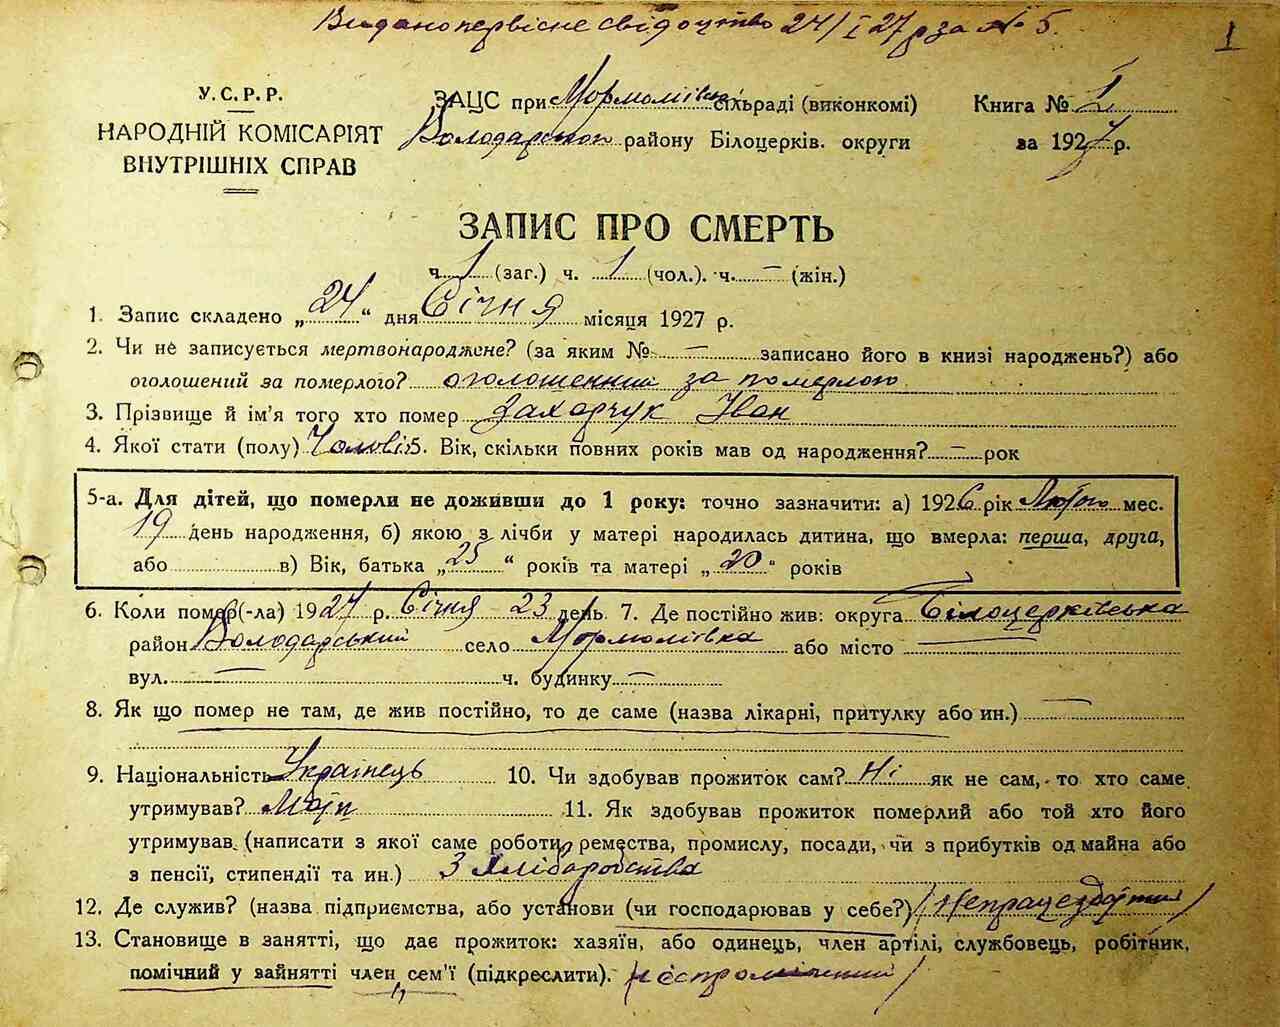 Видано первісне свідоцтво 24/I 27 р за № 5.
1
У.С.Р.Р.
НАРОДНІЙ КОМІСАРІЯТ
ВНУТРІШНІХ СПРАВ
ЗАЦС при Мормоліівск. сільраді (виконкомі)
Володарського району Білоцерків. округи
Книга № 1
за 1927 р.
ЗАПИС ПРО СМЕРТЬ
ч. 1 (заг.) ч. 1 (чол.). ч. — (жін.)
1. Запис складено „24“ дня Січня місяця 1927 р.
2. Чи не записується мертвонароджене? (за яким № — записано його в книзі народжень?) або
оголошений за померлого? оголошений за померлого
3. Прізвище й ім'я того хто помер Захарчук Іван
4. Якої стати (полу) Чоловіч. Вік, скільки повних років мав од народження? — рок
5-а. Для дітей, що померли не доживши до 1 року: точно зазначити: а) 1926 рік Лютого мес.
19 день народження, б) якою з лічби у матері народилась дитина, що вмерла: перша, друга,
або в) Вік, батька „25“ років та матері „20“ років
6. Коли помер(-ла) 1927 р. Січня 23 день. 7. Де постійно жив: округа Білоцерківська
район Володарський село Мормоліівка або місто —
вул. — ч. будинку —
8. Як що помер не там, де жив постійно, то де саме (назва лікарні, притулку або ин.) —
9. Національність Українець 10. Чи здобував прожиток сам? Ні як не сам, то хто саме
утримував? Мати 11. Як здобував прожиток померлий або той хто його
утримував (написати з якої саме роботи, ремества, промислу, посади, чи з прибутків од майна або
з пенсії, стипендії та ин.) З хліборобства
12. Де служив? (назва підприємства, або установи (чи господарював у себе?) (Непрацездатний)
13. Становище в занятті, що дає прожиток: хазяїн, або одинець, член артілі, службовець, робітник,
помічний у зайнятті член сем'ї (підкреслити).